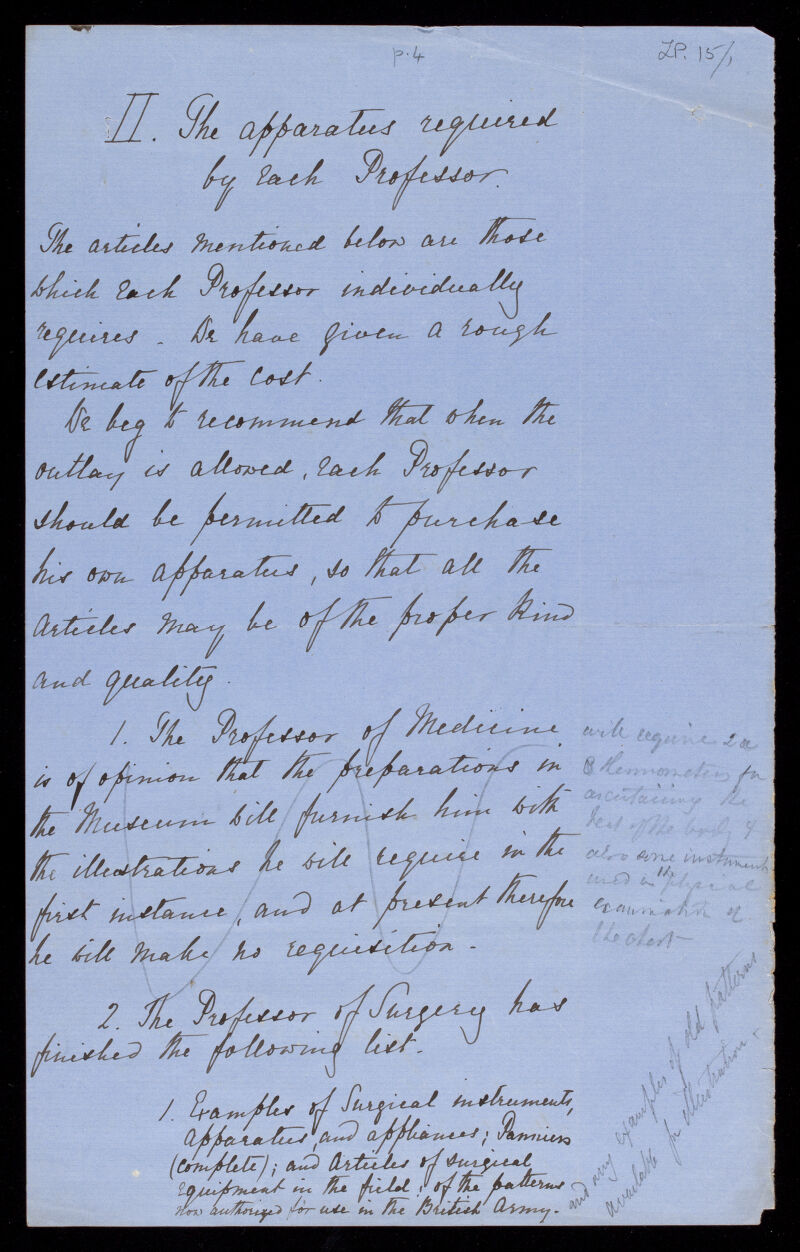 p. 4
ZP. 15/1
II. The apparatus required
by each Professor.
The articles mentioned below are those
which each Professor individually
requires. We have given a rough
estimate of the cost.
We beg to recommend that when the
outlay is allowed, each Professor
should be permitted to purchase
his own apparatus, so that all the
articles may be of the proper kind
and quality.
1. The Professor of Medicine
is of opinion that the preparations in
the Museum will furnish him with
the illustrations he will require in the
first instance, and at present therefore
he will make no requisition.
will require 2 or
3 thermometers for
ascertaining the
heat of the body &
also some instruments
used in the physical
examination of
the chest
2. The Professor of Surgery has
finished the following list.
1. Examples of Surgical instruments,
apparatus, and appliances; Panniers
(complete); and Articles of surgical
equipment in the field; of the patterns
now authorized for use in the British Army.
and any examples of old patterns
available for illustration.